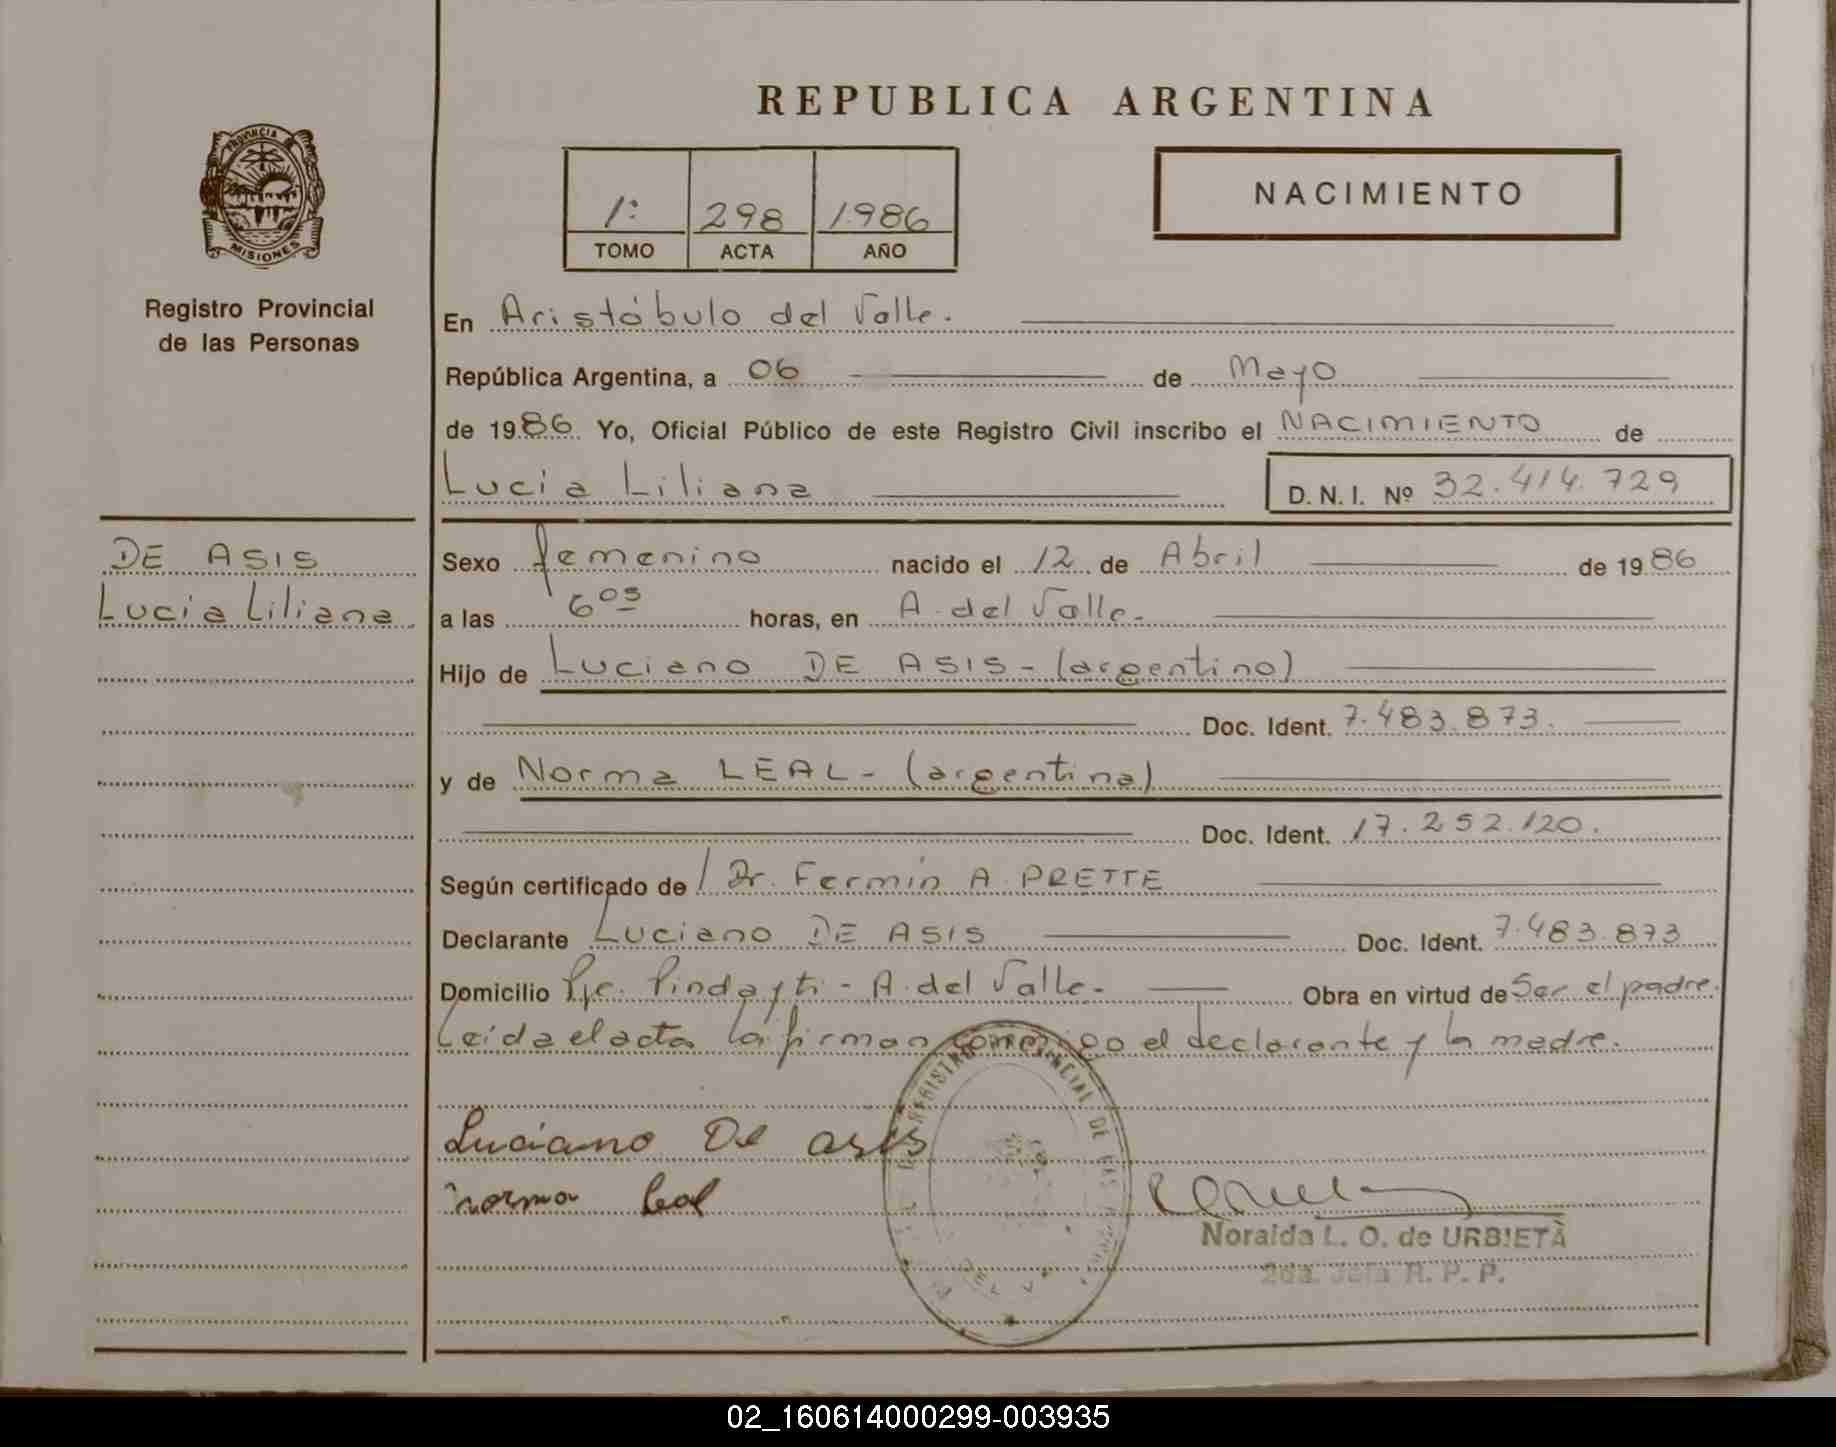 REPUBLICA ARGENTINA
PROVINCIA
MISIONES
Registro Provincial
de las Personas
1º 298 1986
TOMO ACTA AÑO
NACIMIENTO
En Aristóbulo del Valle.
República Argentina, a 06 de Mayo
de 1986 Yo, Oficial Público de este Registro Civil inscribo el NACIMIENTO de
Lucia Liliana D. N. I. Nº 32.414.729
DE ASIS
Lucia Liliana
Sexo femenino nacido el 12 de Abril de 1986
a las 6 05 horas, en A. del Valle.
Hijo de Luciano DE ASIS - (argentino)
Doc. Ident. 7.483.873.
y de Norma LEAL - (argentina)
Doc. Ident. 17.252.120.
Según certificado de Dr. Fermín A. PRETTE
Declarante Luciano DE ASIS Doc. Ident. 7.483.873
Domicilio Pje. Pindayti - A. del Valle. Obra en virtud de Ser el padre.
Leída el acta la firman conmigo el declarante y la madre.
Luciano De asis
norma leal
REGISTRO PROVINCIAL DE LAS
DEL V
Noraida L. O. de URBIETA
2da. Jefa R. P. P.
02_160614000299-003935